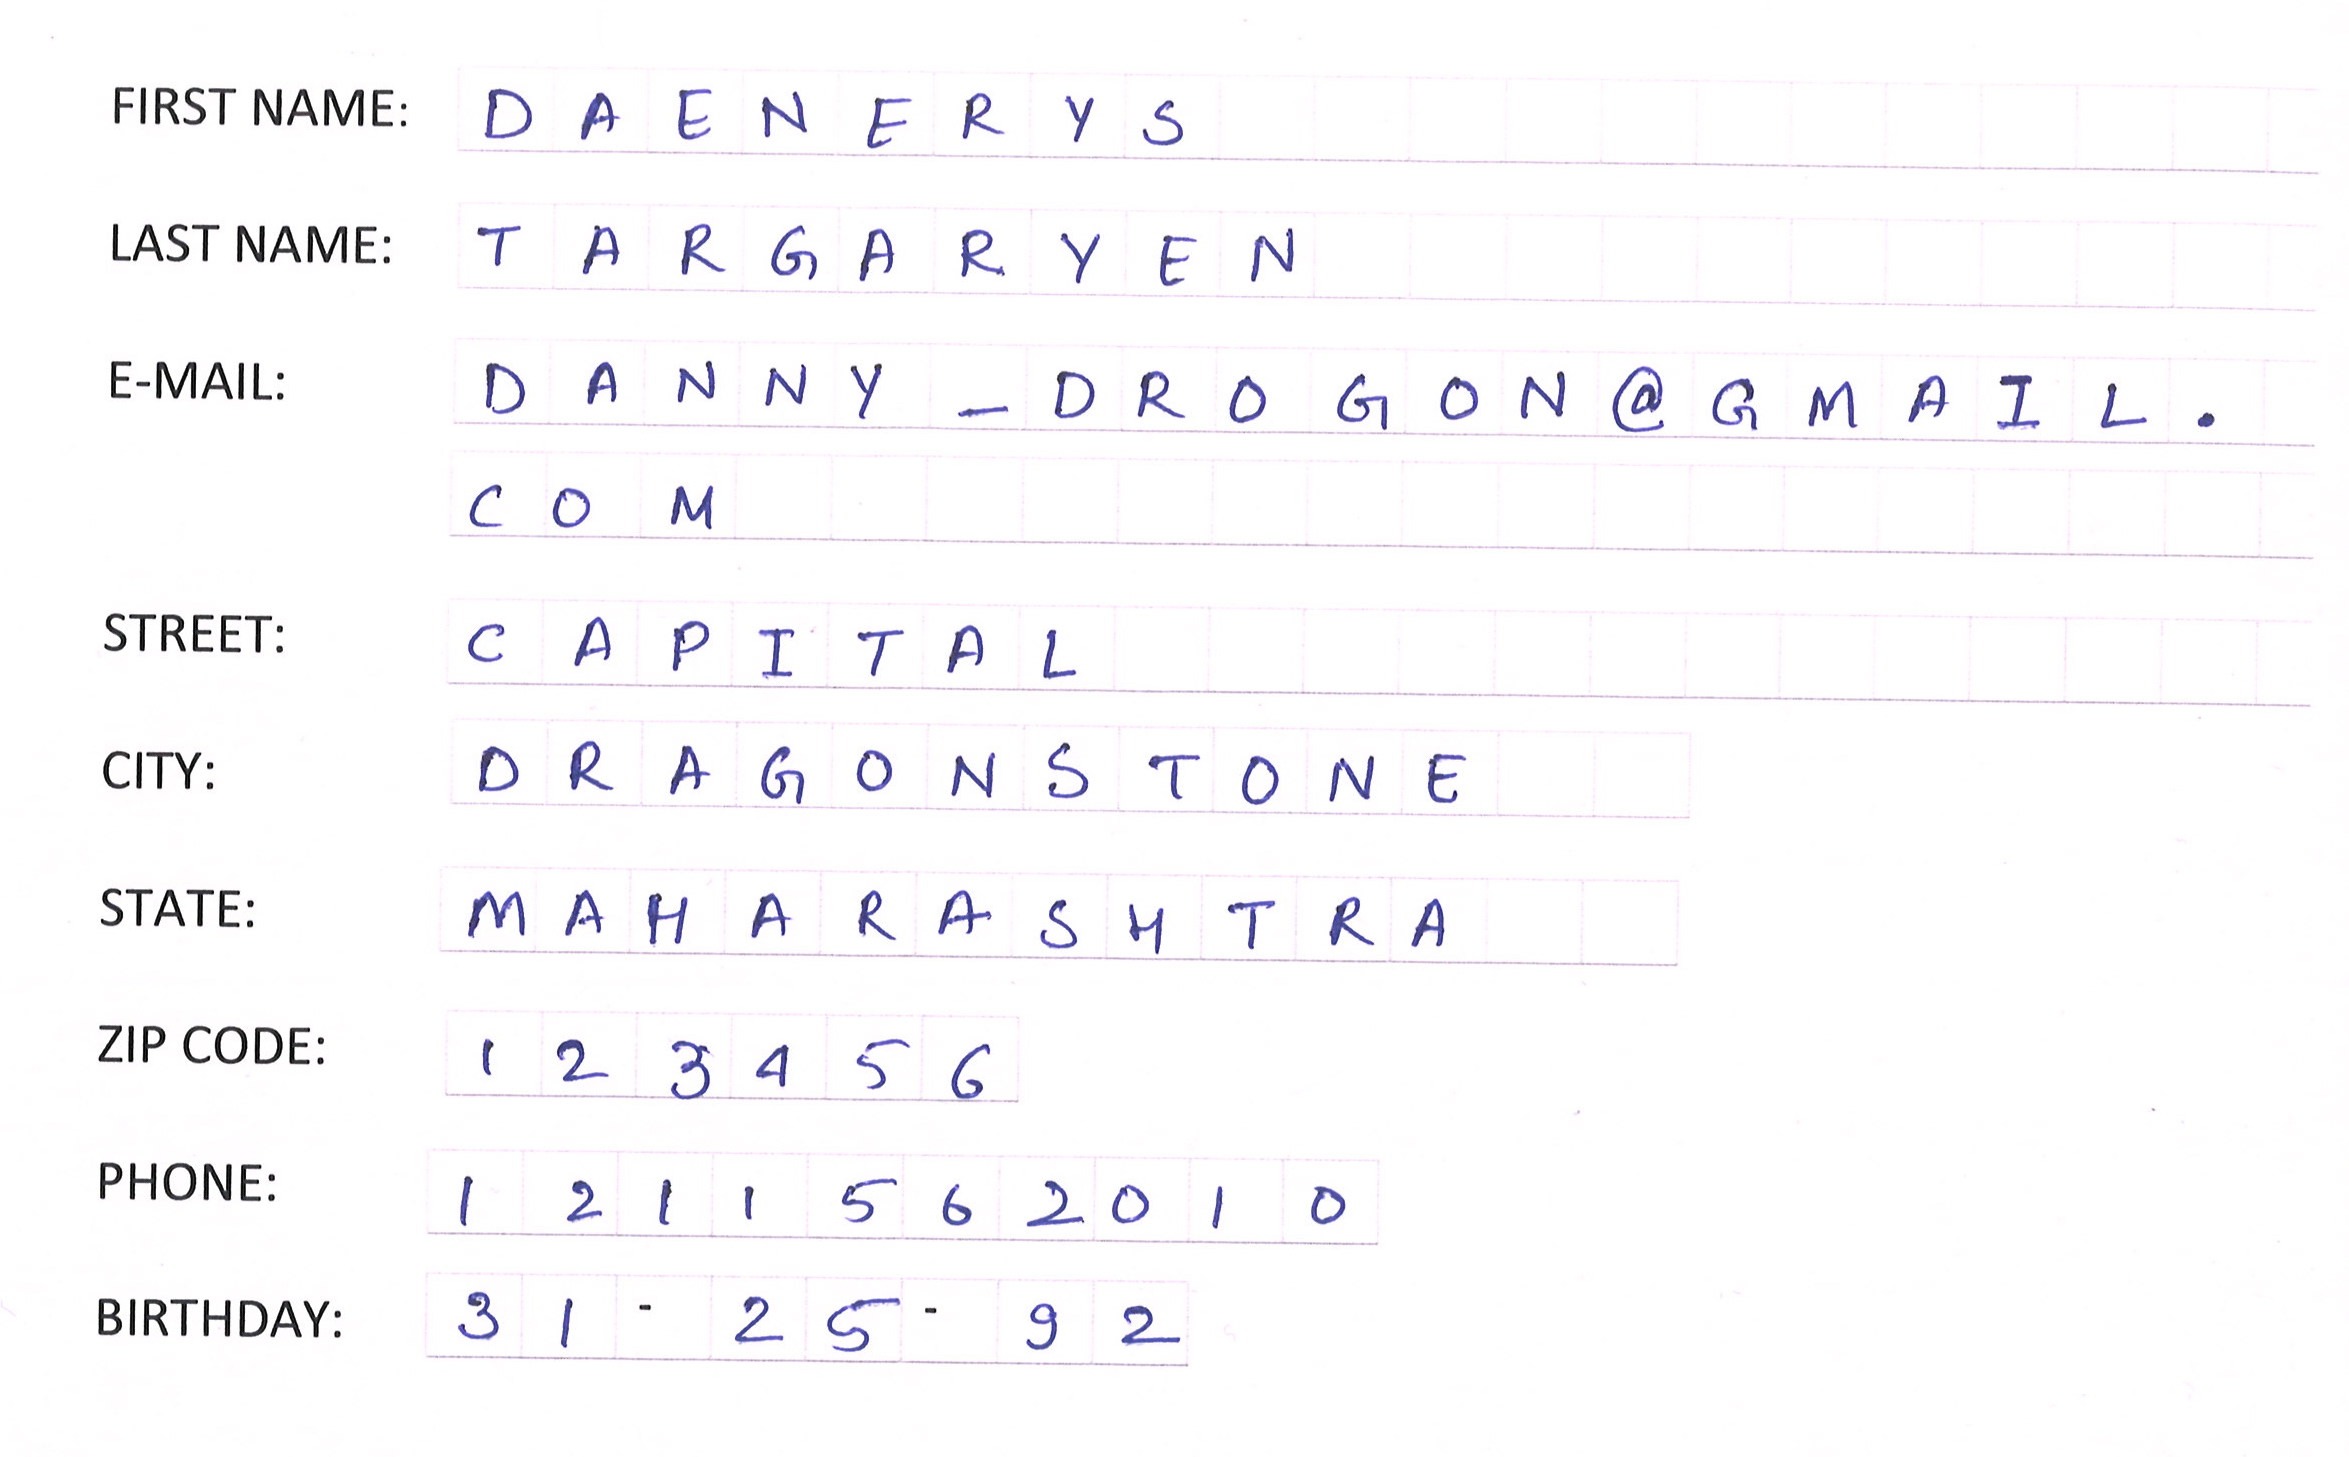 FIRST NAME: DAENERYS
LAST NAME: TARGARYEN
E-MAIL: DANNY_DROGON@GMAIL.
COM
STREET: CAPITAL
CITY: DRAGONSTONE
STATE: MAHARASHTRA
ZIP CODE: 123456
PHONE: 1211562010
BIRTHDAY: 31-25-92